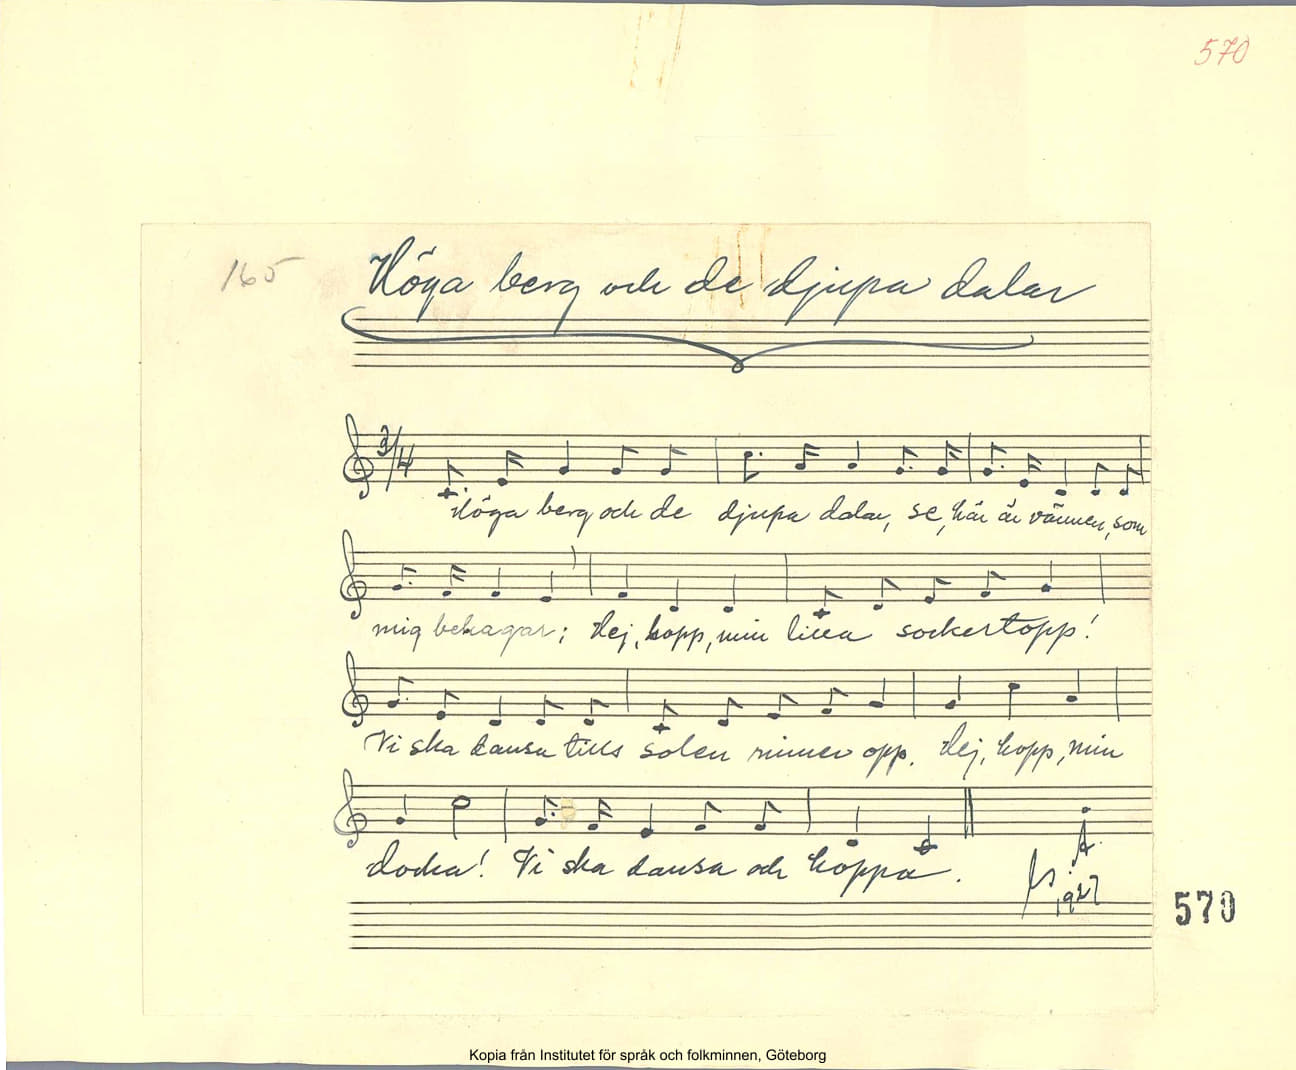 570
165
Höga berg och de djupa dalar
3/4
Höga berg och de djupa dalar, se, här är vännen, som
mig behagar; Hej, hopp, min lilla sockertopp!
Vi ska dansa tills solen rinner opp. Hej, hopp, min
docka! Vi ska dansa och hoppa.
1927
570
Kopia från Institutet för språk och folkminnen, Göteborg